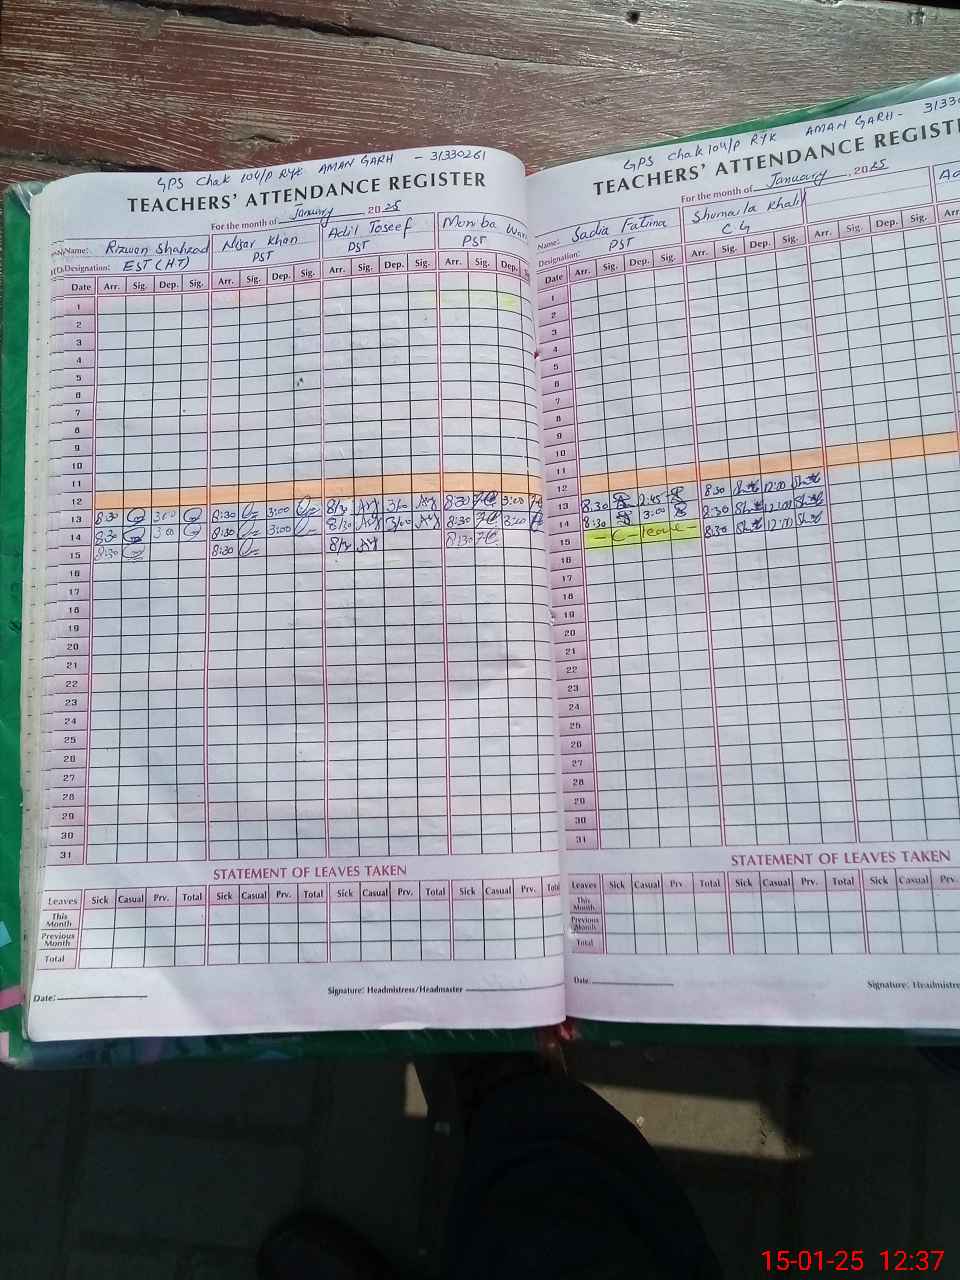 GPS Chak 104/P RYK AMAN GARH - 31330261
TEACHERS' ATTENDANCE REGISTER
For the month of January 2025
Name: Rizwan Shahzad Nisar Khan Adil Toseef Moniba
Designation: EST (HT) PST PST PST
Date Arr. Sig. Dep. Sig. Arr. Sig. Dep. Sig. Arr. Sig. Dep. Sig. Arr. Sig. Dep.
1
2
3
4
5
6
7
8
9
10
11
12
13 8:30 3:00 8:30 3:00 8:30 3:00
14 8:30 3:00 8:30 3:00 8:30 3:00
15 8:30 8:30 8:30
16
17
18
19
20
21
22
23
24
25
26
27
28
29
30
31
STATEMENT OF LEAVES TAKEN
Leaves Sick Casual Prv. Total Sick Casual Prv. Total Sick Casual Prv. Total Sick Casual Prv. Total
This Month
Previous Month
Total
Date: Signature: Headmistress/Headmaster
GPS Chak 104/P RYK AMAN GARH - 3133
TEACHERS' ATTENDANCE REGIST
For the month of January, 2025
Name: Sadia Fatima Shumaila Khalil
Designation: PST C.G
Date Arr. Sig. Dep. Sig. Arr. Sig. Dep. Sig. Arr. Sig. Dep. Sig. Arr.
1
2
3
4
5
6
7
8
9
10
11
12
13 8:30 2:45 8:30 12:00
14 8:30 3:00 8:30 12:00
15 - C - leave - 8:30 12:00
16
17
18
19
20
21
22
23
24
25
26
27
28
29
30
31
STATEMENT OF LEAVES TAKEN
Leaves Sick Casual Prv. Total Sick Casual Prv. Total Sick Casual Prv.
This Month
Previous Month
Total
Date: Signature: Headmistre
15-01-25 12:37